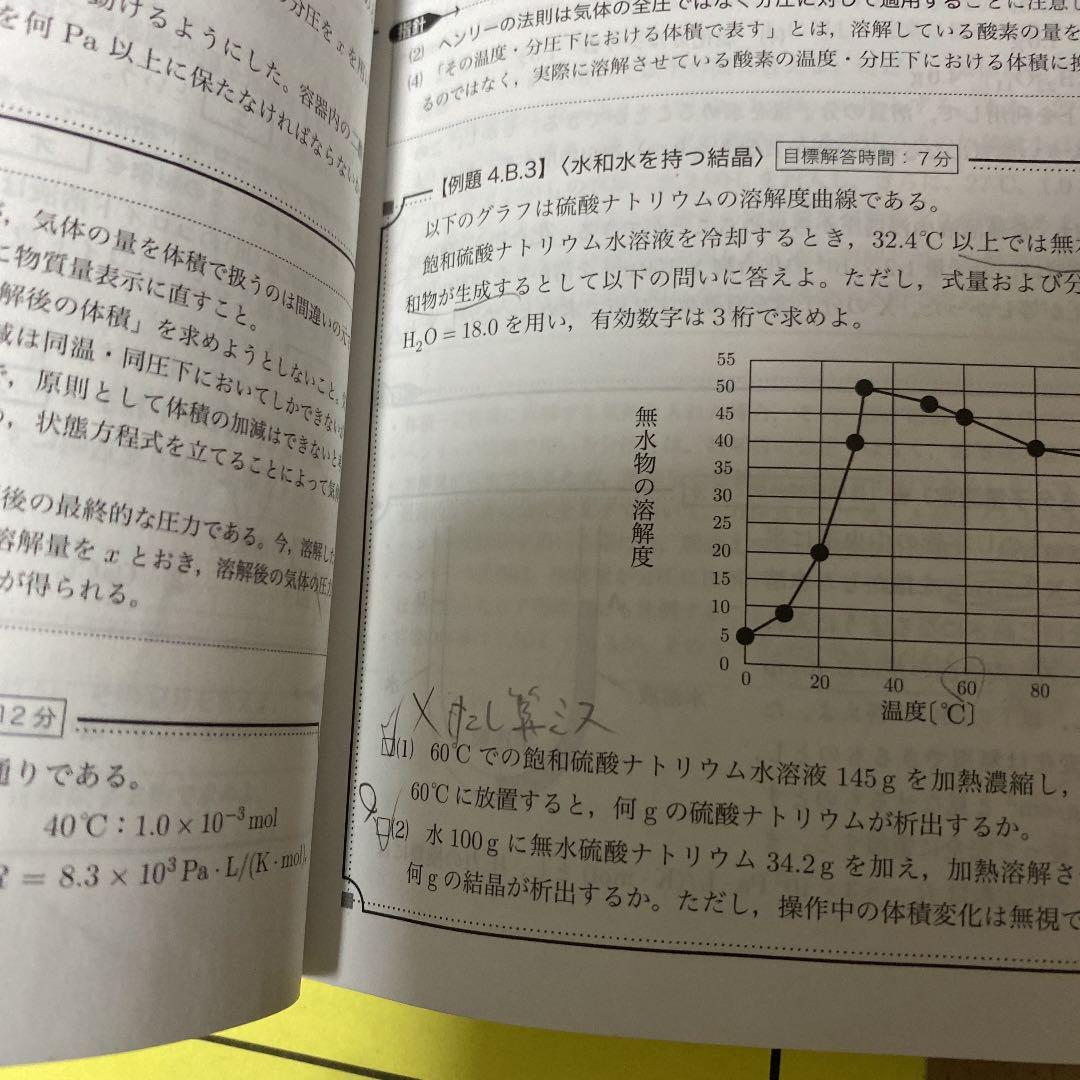 動けるようにした。容器内の二
を何 Pa 以上に保たなければならないか
気体の量を体積で扱うのは間違いの元
に物質量表示に直すこと。
解後の体積」を求めようとしないこと。
減は同温・同圧下においてしかできない
で，原則として体積の加減はできないと
，状態方程式を立てることによって気体
後の最終的な圧力である。今，溶解した
溶解量を x とおき，溶解後の気体の圧力
が得られる。
12分
通りである。
40℃：1.0 × 10⁻³ mol
= 8.3 × 10³ Pa·L/(K·mol)
指針
(2) ヘンリーの法則は気体の全圧ではなく分圧に対して適用することに注意し
(4) 「その温度・分圧下における体積で表す」とは，溶解している酸素の量を
るのではなく，実際に溶解させている酸素の温度・分圧下における体積に換
【例題 4.B.3】〈水和水を持つ結晶〉 目標解答時間：7分
以下のグラフは硫酸ナトリウムの溶解度曲線である。
飽和硫酸ナトリウム水溶液を冷却するとき，32.4℃ 以上では無水
和物が生成するとして以下の問いに答えよ。ただし，式量および分
H₂O = 18.0 を用い，有効数字は 3 桁で求めよ。
無水物の溶解度
55
50
45
40
35
30
25
20
15
10
5
0
0 20 40 60 80
温度〔℃〕
× たし算ミス
(1) 60℃ での飽和硫酸ナトリウム水溶液 145 g を加熱濃縮し，
60℃ に放置すると，何 g の硫酸ナトリウムが析出するか。
(2) 水 100 g に無水硫酸ナトリウム 34.2 g を加え，加熱溶解さ
何 g の結晶が析出するか。ただし，操作中の体積変化は無視で